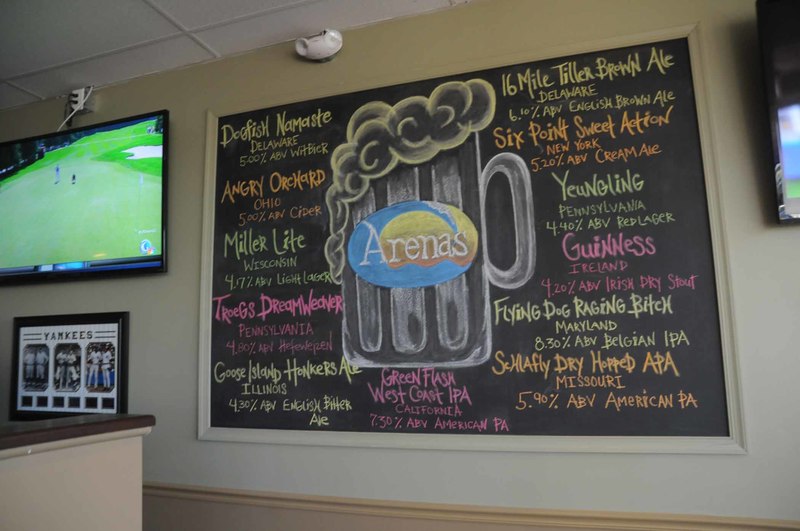 Dogfish Namaste
Delaware
5.00% ABV Witbier
Angry Orchard
Ohio
5.00% ABV Cider
Miller Lite
Wisconsin
4.17% ABV Light Lager
Troegs DreamWeaver
Pennsylvania
4.80% ABV Hefeweizen
Goose Island Honkers Ale
Illinois
4.30% ABV English Bitter
Ale
Arenas
Green Flash
West Coast IPA
California
7.30% ABV American PA
16 Mile Tiller Brown Ale
Delaware
6.10% ABV English Brown Ale
Six Point Sweet Action
New York
5.20% ABV Cream Ale
Yeungling
Pennsylvania
4.40% ABV Red Lager
Guinness
Ireland
4.20% ABV Irish Dry Stout
Flying Dog Raging Bitch
Maryland
8.30% ABV Belgian IPA
Schlafly Dry Hopped APA
Missouri
5.90% ABV American PA
YANKEES